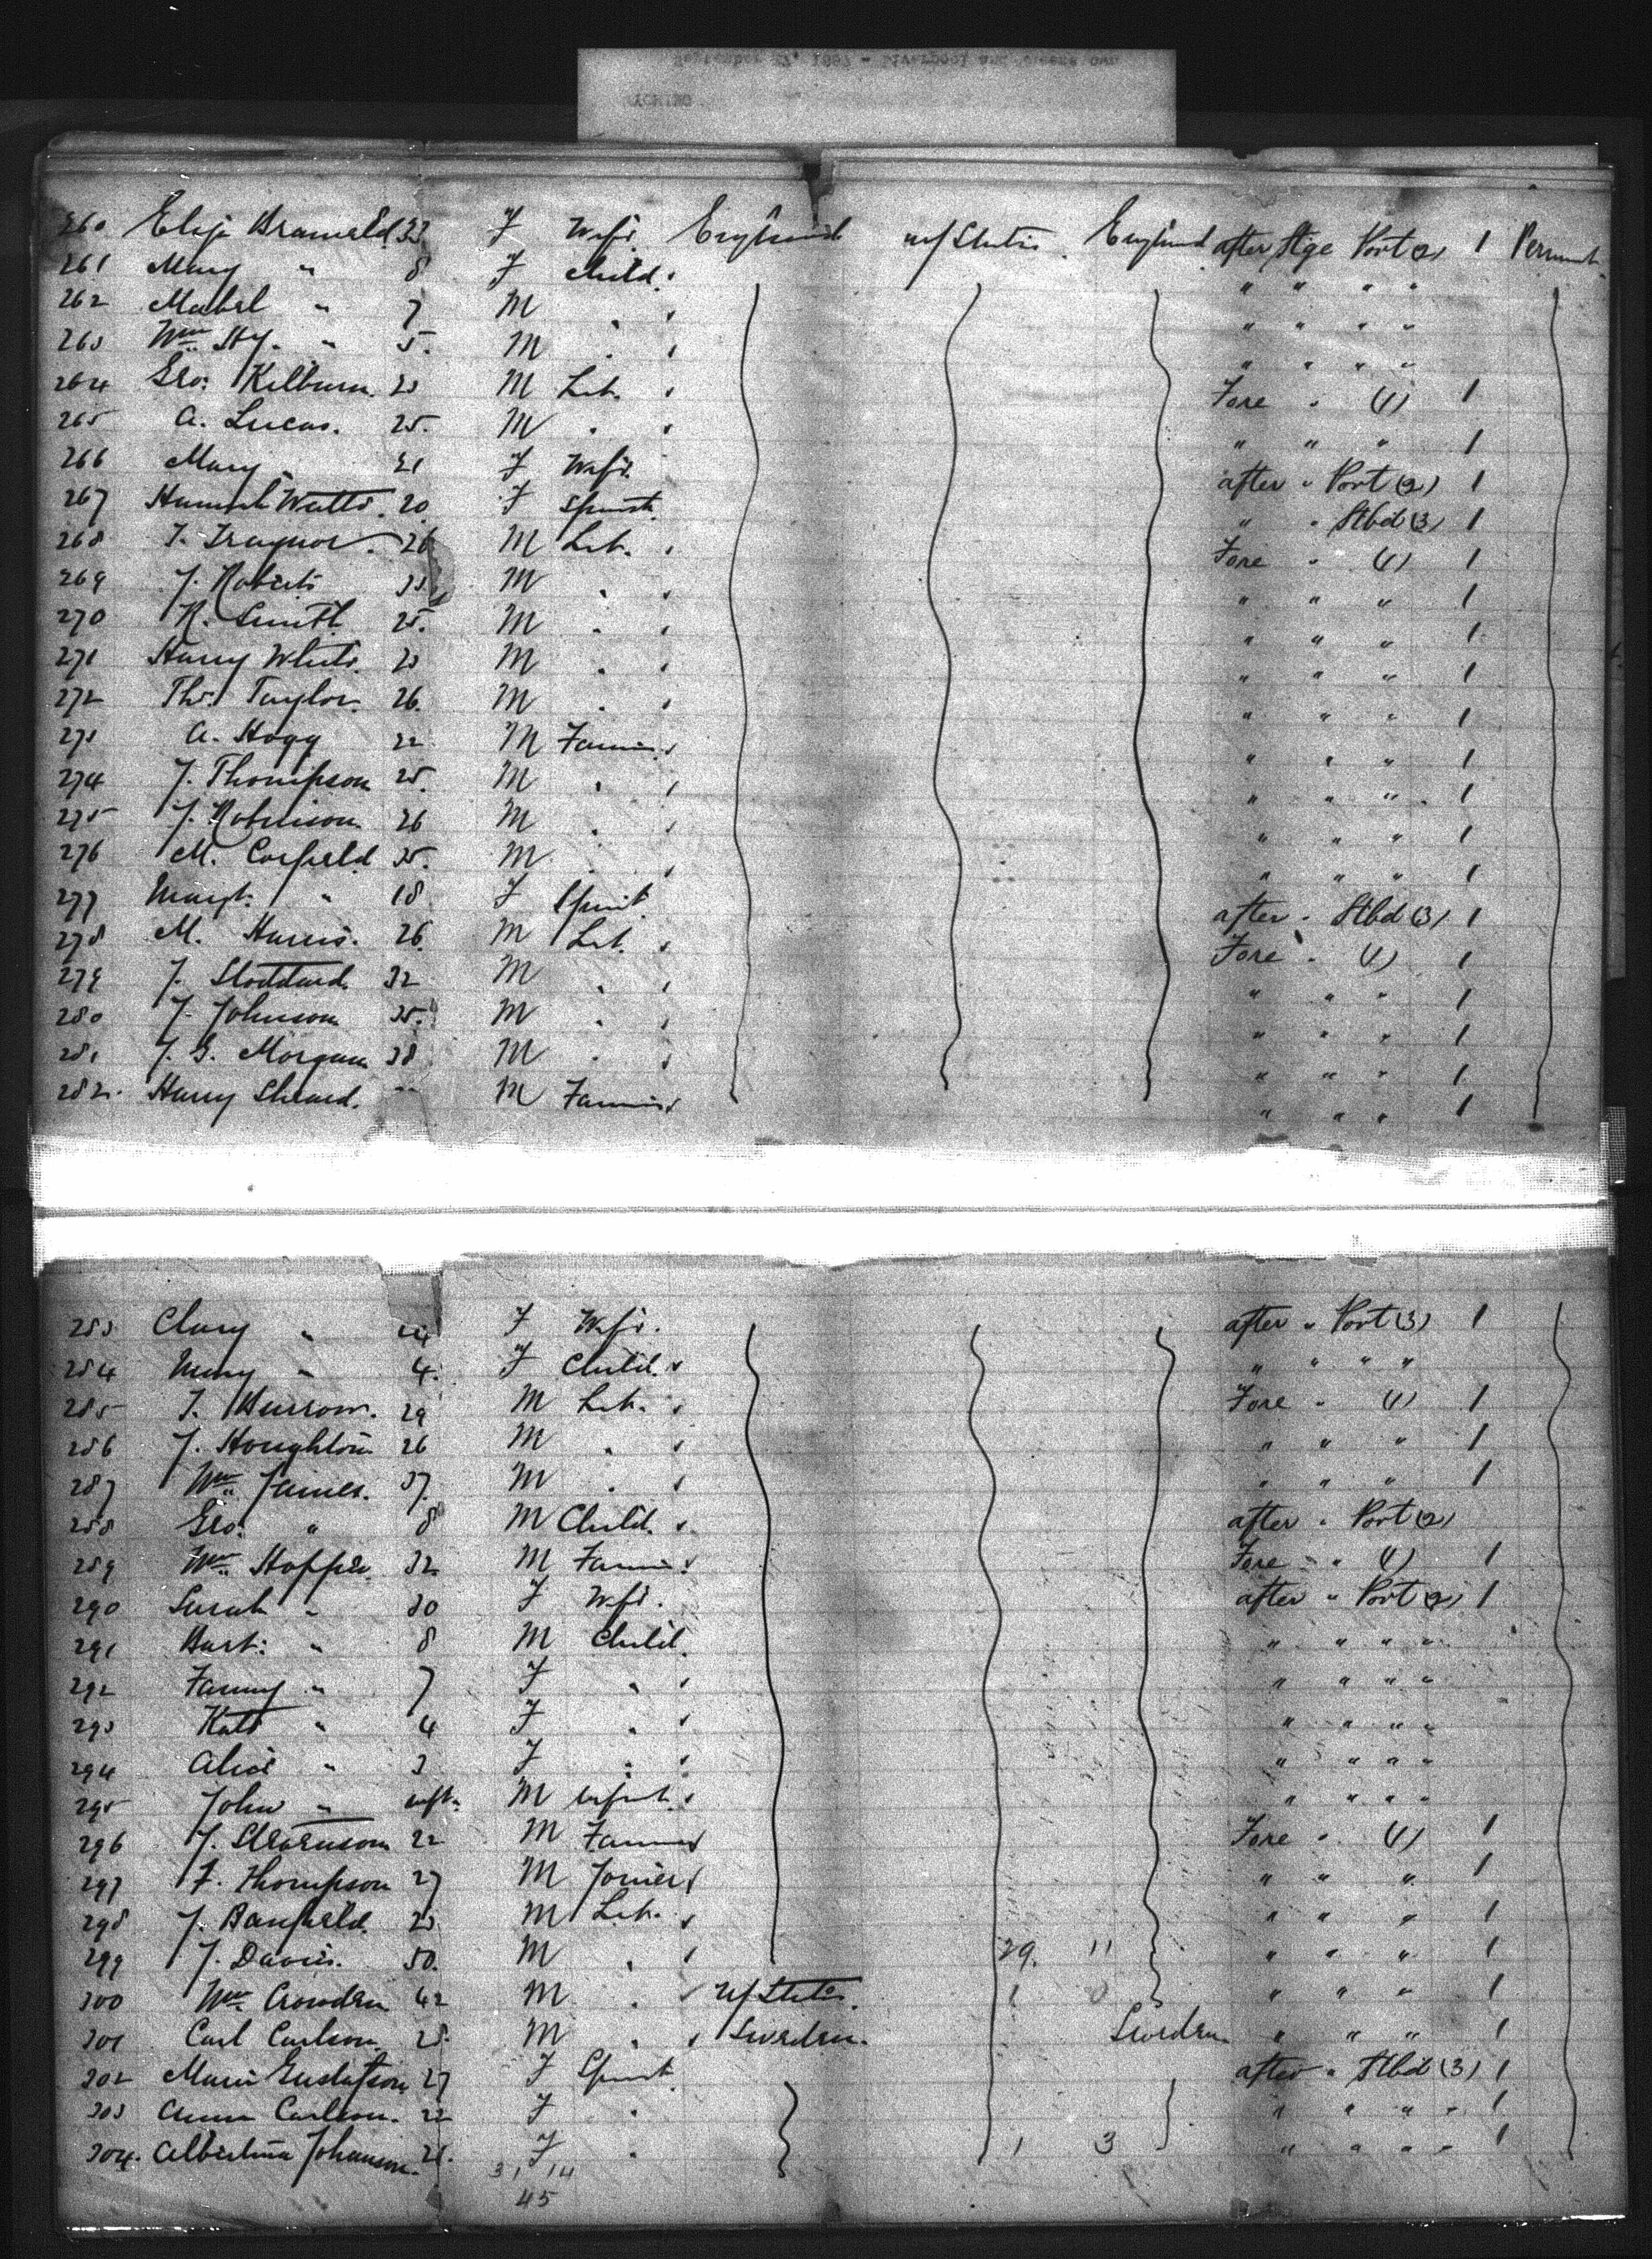 September 27, 1887 - Liverpool and Queens own
WYOMING
260 Eliz Bramald 33 F Wife England U/States England after Stge Port (2) 1 Permnt.
261 Mary " 8 F Child " " " "
262 Mabel " 7 M " " " " "
263 Wm Hy. " 5 M " " " " "
264 Geo: Kilburn. 23 M Lab. Fore " (1) 1
265 A. Lucas. 25 M " " " " 1
266 Mary " 21 F Wife after " Port (2) 1
267 Hannah Watts. 20 F Spinst. " " Stbd (3) 1
268 T. Traynor. 26 M Lab. Fore " (1) 1
269 J. Roberts 35 M " " " " 1
270 R. Smith 25. M " " " " 1
271 Harry White. 23 M " " " " 1
272 Ths. Taylor. 26. M " " " " 1
273 A. Hogg 22 M Farmer " " " 1
274 J. Thompson 25. M " " " " 1
275 J. Robinson 26 M " " " " 1
276 M. Corfield 35. M " " " " 1
277 Margt. " 18 F Spinst. after " Stbd (3) 1
278 M. Harris. 26. M Lab. Fore " (1) 1
279 J. Stoddard. 32 M " " " " 1
280 J. Johnson 35. M " " " " 1
281 J. G. Morgan 38 M " " " " 1
282. Harry Sheard. M Farmer " " " 1
283 Clary " 24 F Wife. after " Port (3) 1
284 Mary " 4. F Child. " " " "
285 T. Burrow. 29 M Lab. Fore " (1) 1
286 J. Houghton 26 M " " " " 1
287 Wm James. 37. M " " " " 1
288 Geo: " 8 M Child. after " Port (2)
289 Wm Hopper. 32 M Farmer Fore " (1) 1
290 Sarah " 30 F Wife. after " Port (2) 1
291 " 8 M Child. " " " "
292 Fanny " 7 F " " " " "
293 Kate " 4 F " " " " "
294 Alice " 3 F " " " " "
295 John " inft. M Infant. " " " "
296 J. Stevenson 22 M Farmer Fore " (1) 1
297 F. Thompson 27 M Joiner " " " 1
298 J. Banfield. 23 M Lab. " " " 1
299 J. Davis. 50. M " 29. 11 " " " 1
300 Wm Crowden 42 M " U/States. 1 0 " " " 1
301 Carl Carlson. 28. M " Sweden. Sweden " " " 1
302 Maria Gustafson 27 F Spinst. after " Stbd (3) 1
303 Anna Carlson. 22 F " " " " " 1
304. Albertina Johanson. 21. F " 1 3 " " " " 1
31 14
45